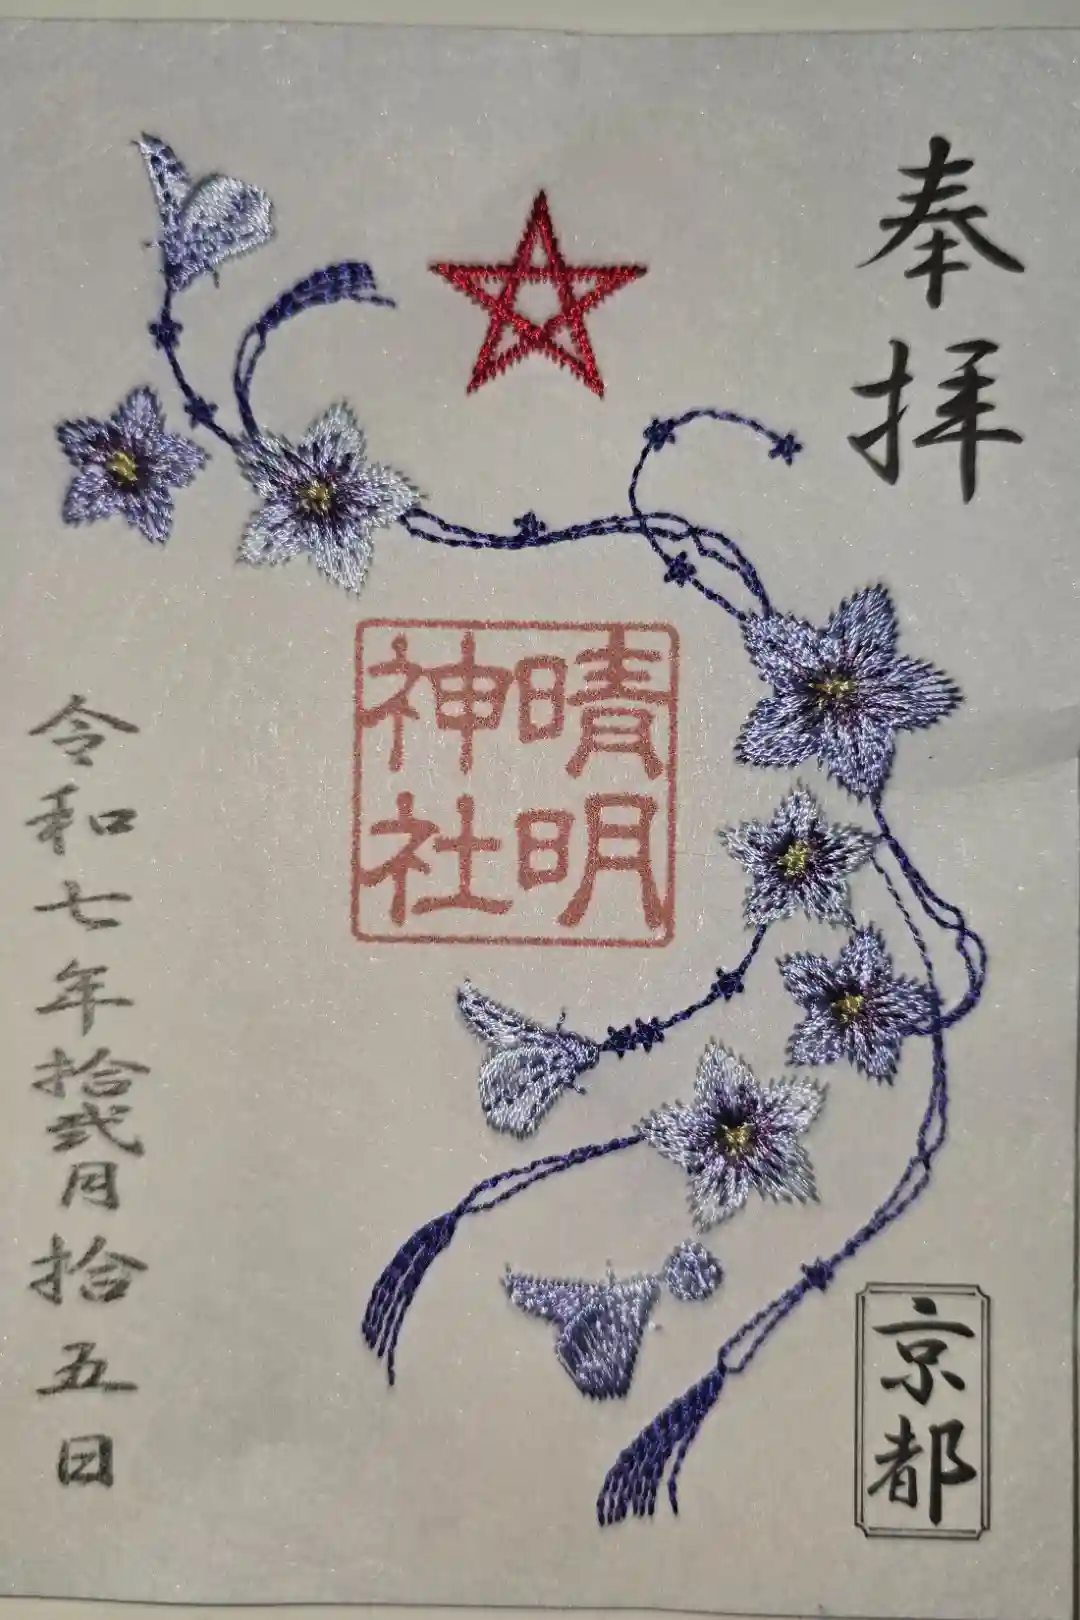 奉拝
晴明
神社
京都
令和七年拾弐月拾五日